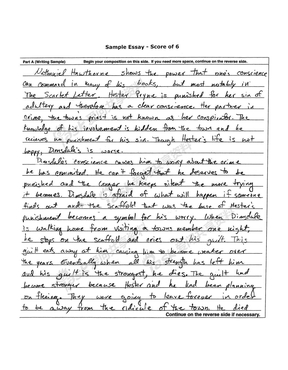 Sample Essay - Score of 6
Part A (Writing Sample) Begin your composition on this side. If you need more space, continue on the reverse side.
Nathaniel Hawthorne shows the power that one's conscience
can command in many of his books, but most notably in
The Scarlet Letter. Hester Prynne is punished for her sin of
adultery and therefore has a clear conscience. Her partner in
crime, the town's priest is not known as her conspirator. The
knowledge of his involvement is hidden from the town and he
receives no punishment for his sin. Though Hester's life is not
happy, Dimsdale's is worse.
Dimsdale's conscience causes him to worry about the crime
he has committed. He can't forget that he deserves to be
punished and the longer he keeps silent the more trying
it becomes. Dimsdale is afraid of what will happen if someone
finds out and the scaffold that was the base of Hester's
punishment becomes a symbol for his worry. When Dimsdale
is walking home from visiting a towns member one night,
he stops on the scaffold and cries out his guilt. This
guilt eats away at him causing him to become weaker over
the years. Eventually when all his strength has left him
and his guilt is the strongest, he dies. The guilt had
become stronger because Hester and he had been planning
on fleeing. They were going to leave forever in order
to be away from the ridicule of the town. He died
Continue on the reverse side if necessary.